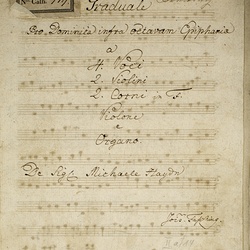 Graduale
Pro Dominica infra octavam Epiphaniæ
a
4. Voci
2. Violini
2. Corni in F.
Violone
e
Organo.
De Sigl. Michaele Haydn